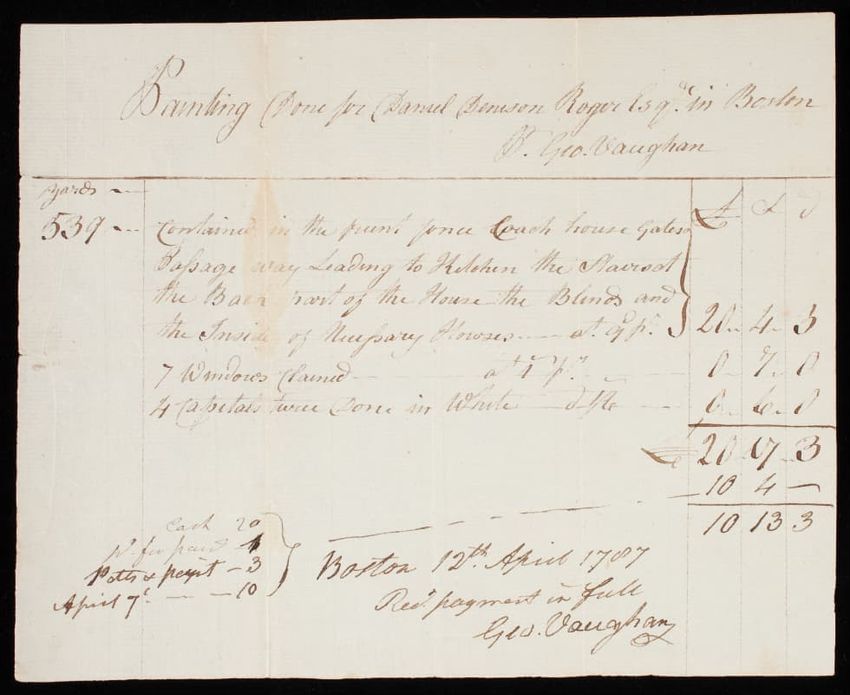 Painting Done for Daniel Denison Roger Esqr. in Boston
Pr. Geo. Vaughan
yards
£ S d
539 Contained in the frunt fence Coach house Gates
Passage way Leading to Kitchen the Stairs at
the Back part of the House the Blinds and
the Inside of Nessary Howses at 9d pr. 20 4 3
7 Windows Claned at 1/ pr. 0 7 0
4 Capitals twice Done in White 0 6 0
£ 20 17 3
10 4 —
10 13 3
Cash 20
paid 1
Potts & paint 3
April 7t. 10
Boston 12th April 1787
Recd. payment in full
Geo. Vaughan